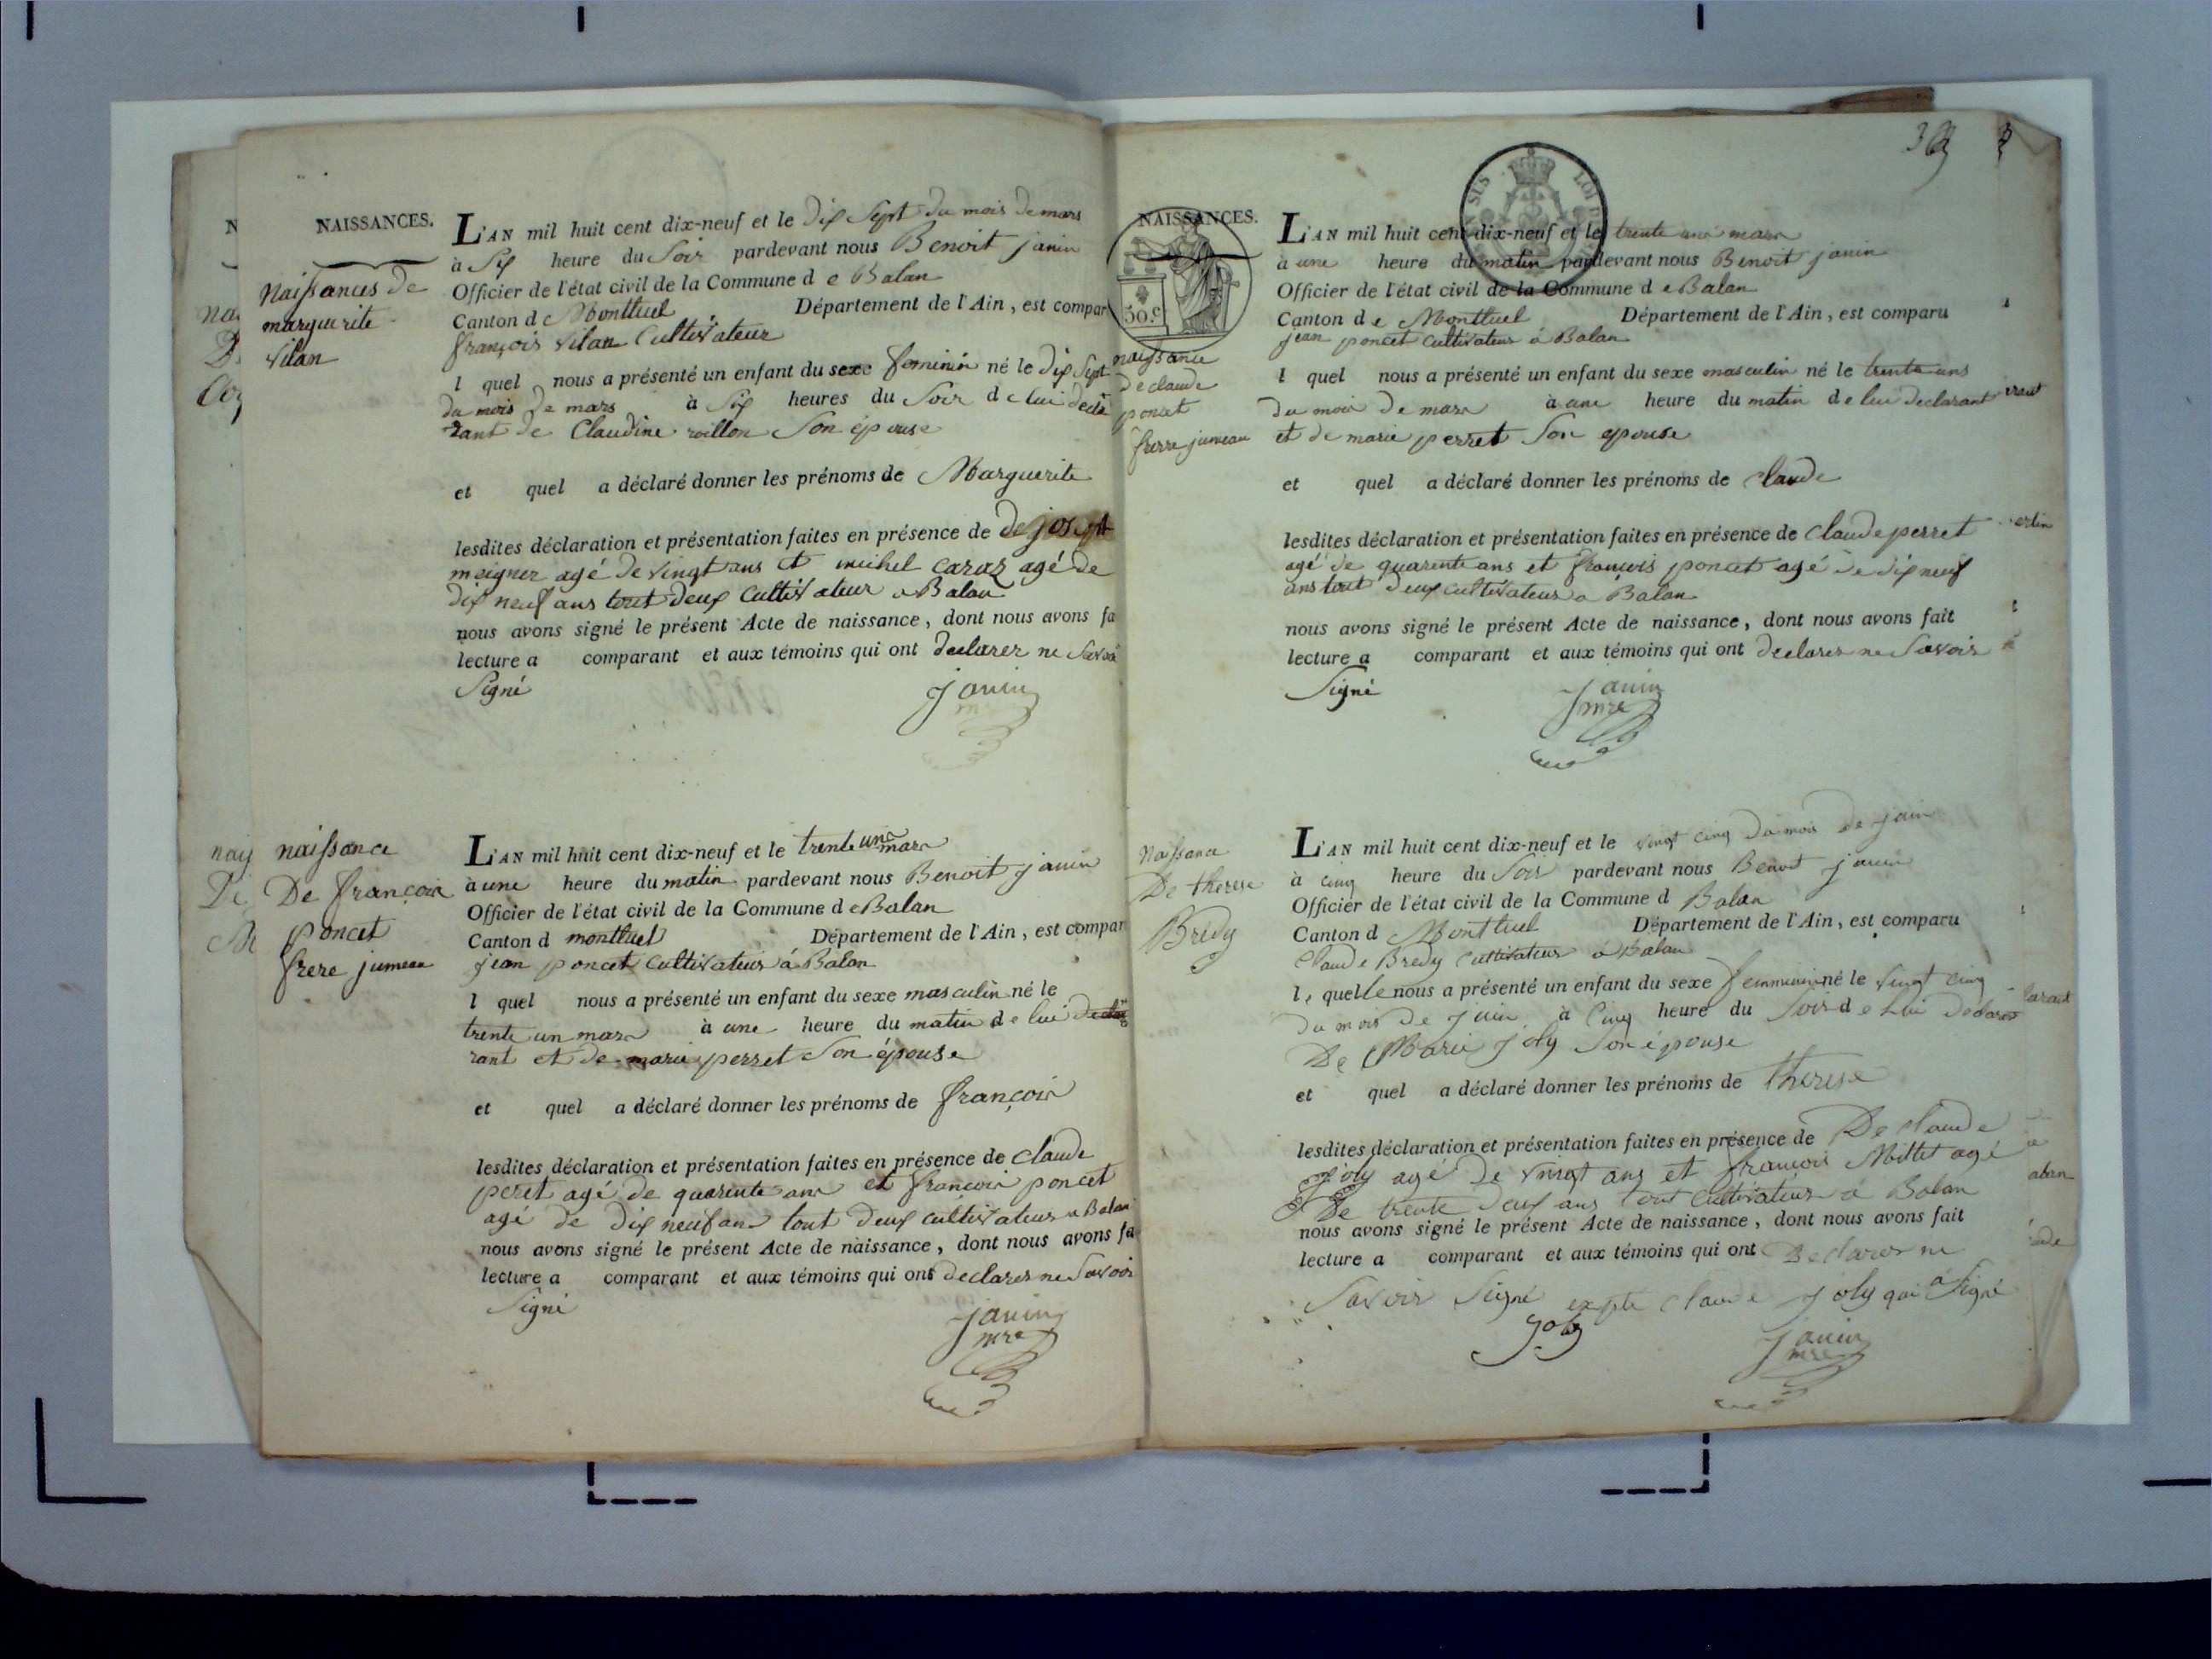 NAISSANCES.
Naissances de
marguerite
vilan
L'AN mil huit cent dix-neuf et le dix sept du mois de mars
à Six heure du Soir pardevant nous Benoit janin
Officier de l'état civil de la Commune d e Balan
Canton de Montluel Département de l'Ain, est compar
françois vilan Cultivateur
l quel nous a présenté un enfant du sexe feminin né le dix Sept
du mois de mars à Six heures du Soir de lui decla
rant de Claudine roillon Son épouse
et quel a déclaré donner les prénoms de Marguerite
lesdites déclaration et présentation faites en présence de de joseph
meigner agé de vingt ans et michel caraz agé de
dix neuf ans tout deux Cultivateur a Balan
nous avons signé le présent Acte de naissance, dont nous avons fa
lecture a comparant et aux témoins qui ont declarer ne Savoir
Signé
janin
naissance
De françois
poncet
frere jumeau
L'AN mil huit cent dix-neuf et le trente un mars
à une heure du matin pardevant nous Benoit janin
Officier de l'état civil de la Commune d e Balan
Canton d montluel Département de l'Ain, est compar
jean poncet cultivateur à Balan
l quel nous a présenté un enfant du sexe masculin né le
trente un mars à une heure du matin de lui decla
rant et de marie perret Son épouse
et quel a déclaré donner les prénoms de françois
lesdites déclaration et présentation faites en présence de claude
peret agé de quarente ans et francois poncet
agé de dix neuf ans tout deux cultivateur a Balan
nous avons signé le présent Acte de naissance, dont nous avons fa
lecture a comparant et aux témoins qui ont declarer ne Savoir
Signé
janin
mre
NAISSANCES.
50.c
naissance
de claude
poncet
frerre jumeau
L'AN mil huit cent dix-neuf et le trente une mars
à une heure du matin pardevant nous Benoit janin
Officier de l'état civil de la Commune d e Balan
Canton d e Montluel Département de l'Ain, est comparu
jean poncet cultivateur à Balan
l quel nous a présenté un enfant du sexe masculin né le trente uns
du mois de mars à une heure du matin de lui declarant
et de marie perret Son epouse
et quel a déclaré donner les prénoms de claude
lesdites déclaration et présentation faites en présence de Claude perret
agé de quarente ans et francois poncet agé de dix neuf
ans tout deux cultivateur a Balan
nous avons signé le présent Acte de naissance, dont nous avons fait
lecture a comparant et aux témoins qui ont declarer ne Savoir
Signé
janin
mre
Naissance
De therese
Bredy
L'AN mil huit cent dix-neuf et le vingt cinq du mois de juin
à cinq heure du Soir pardevant nous Benoit janin
Officier de l'état civil de la Commune d Balan
Canton d Montluel Département de l'Ain, est comparu
Claude Bredy Cultivateur à Balan
l, quelle nous a présenté un enfant du sexe femminin né le vingt cinq
du mois de juin à Cinq heure du Soir de Lui Declarer
De Marie joly Son épouse
et quel a déclaré donner les prénoms de therese
lesdites déclaration et présentation faites en présence de De claude
joly agé de vingt ans et francois Millet agé
De trente deux ans tout Cultivateur à Balan
nous avons signé le présent Acte de naissance, dont nous avons fait
lecture a comparant et aux témoins qui ont Declarer ne
Savoir Signé expte claude joly qui à Signé
Joly
janin
mre